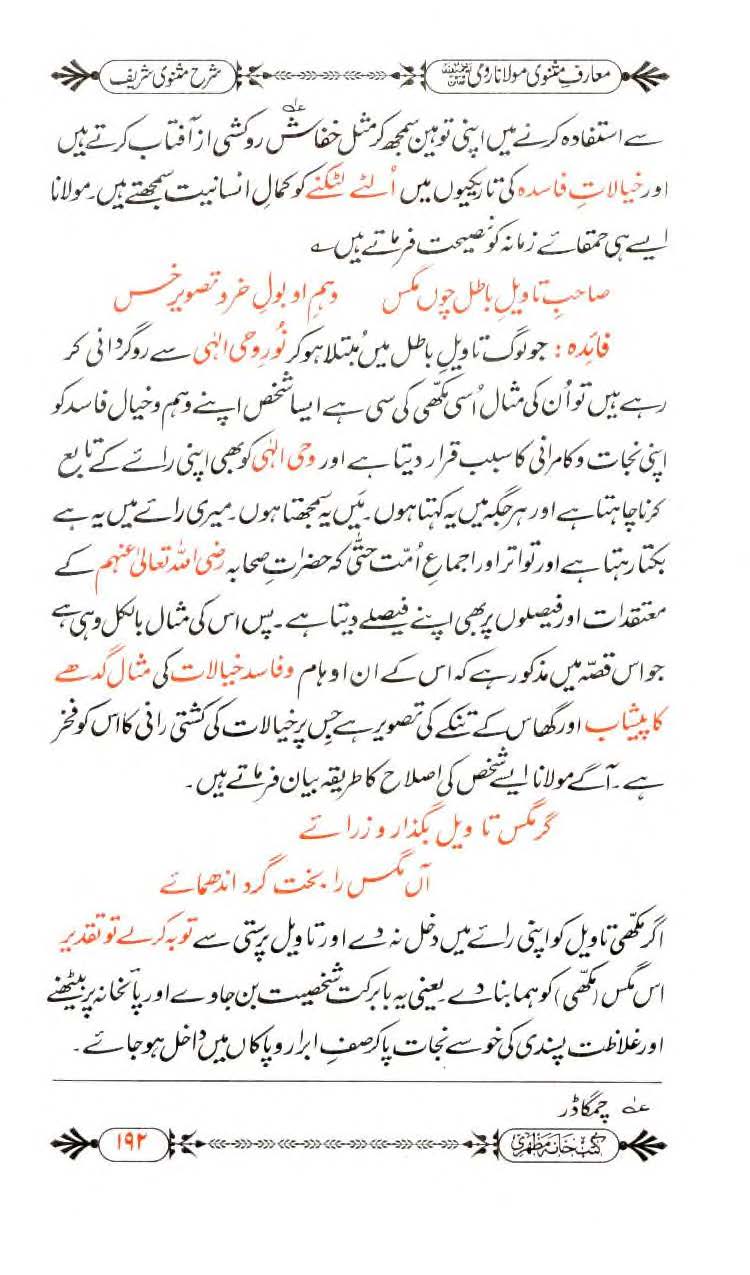 معارفِ مثنوی مولانا رومی شرح مثنوی شریف
سے استفادہ کرنے میں اپنی توہین سمجھ کر مثل خفاش؏ روکشی از آفتاب کرتے ہیں
اور خیالاتِ فاسدہ کی تاریکیوں میں اُلٹے لٹکنے کو کمالِ انسانیت سمجھتے ہیں۔ مولانا
ایسے ہی حمقائے زمانہ کو نصیحت فرماتے ہیں ؎
صاحبِ تاویلِ باطل چوں مگس وہمِ او بولِ خر و تصویرِ خس
فائدہ: جو لوگ تاویلِ باطل میں مُبتلا ہو کر نُورِ وحی الٰہی سے روگردانی کر
رہے ہیں تو اُن کی مثال اُسی مکھّی کی سی ہے ایسا شخص اپنے وہم و خیال فاسد کو
اپنی نجات و کامرانی کا سبب قرار دیتا ہے اور وحی الٰہی کو بھی اپنی رائے کے تابع
کرنا چاہتا ہے اور ہر جگہ میں یہ کہتا ہوں۔ مَیں یہ سمجھتا ہوں۔ میری رائے میں یہ ہے
بکتا رہتا ہے اور تواتر اور اجماعِ اُمّت حتّٰی کہ حضراتِ صحابہ رضی اللہ تعالیٰ عنہم کے
معتقدات اور فیصلوں پر بھی اپنے فیصلے دیتا ہے۔ پس اس کی مثال بالکل وہی ہے
جو اس قصّہ میں مذکور ہے کہ اس کے ان اوہام و فاسد خیالات کی مثال گدھے
کا پیشاب اور گھاس کے تنکے کی تصویر ہے جس پر خیالات کی کشتی رانی کا اس کو فخر
ہے۔ آگے مولانا ایسے شخص کی اصلاح کا طریقہ بیان فرماتے ہیں۔
گر مگس تاویل بگذارد ز رائے
آں مگس را بخت گرداند ہمائے
اگر مکھّی تاویل کو اپنی رائے میں دخل نہ دے اور تاویل پرستی سے توبہ کرلے تو تقدیر
اس مگس (مکھّی) کو ہما بنا دے۔ یعنی یہ بابرکت شخصیت بن جاوے اور پائخانہ پر بیٹھنے
اور غلاظت پسندی کی خو سے نجات پا کر صفِ ابرار و پاکاں میں داخل ہو جائے۔
؏ چمگاڈر
کتب خانہ مظہری ۱۹۲